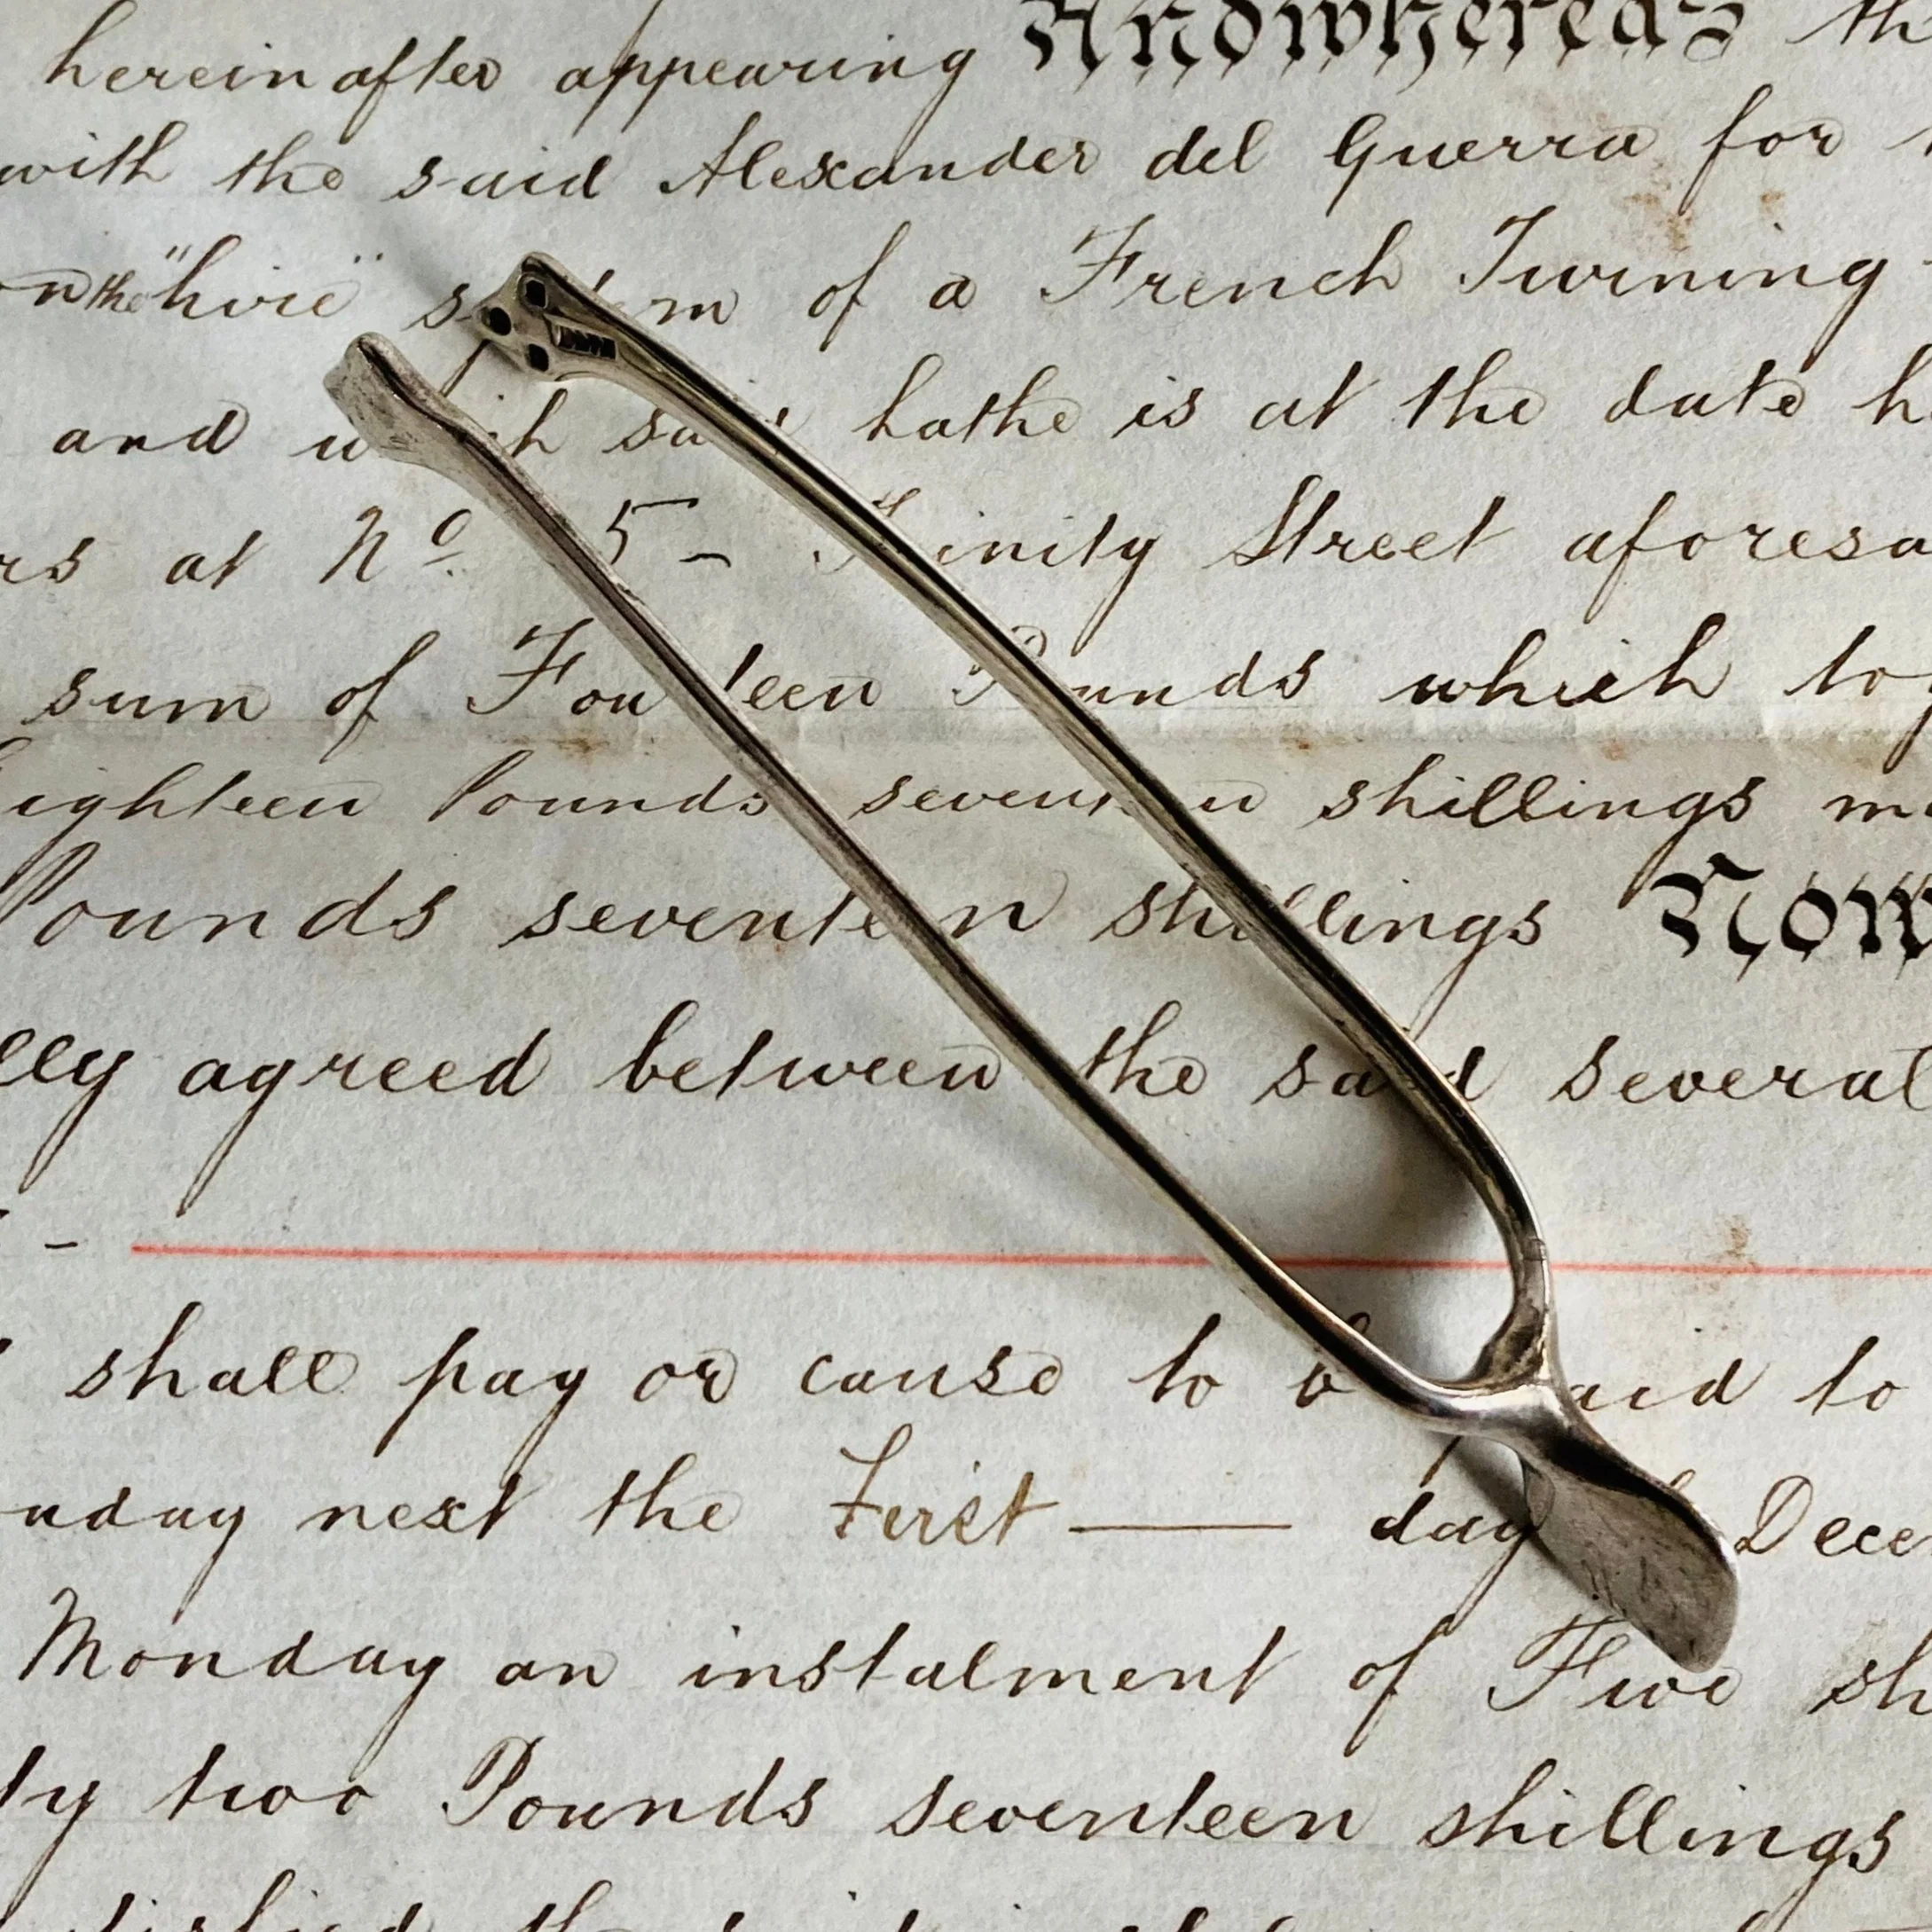 hereinafter appearing And whereas th
with the said Alexander del Guerra for
on the "hire" s m of a French Turning
and w h sa lathe is at the date h
rs at No. 5 - inity Street aforesa
sum of Fou teen P unds which tog
ighteen Pounds seven n shillings m
Pounds seventeen shillings Now
lly agreed between the said several
-
shall pay or cause to b aid to
nday next the First day Dece
Monday an instalment of Five sh
ty two Pounds seventeen shillings